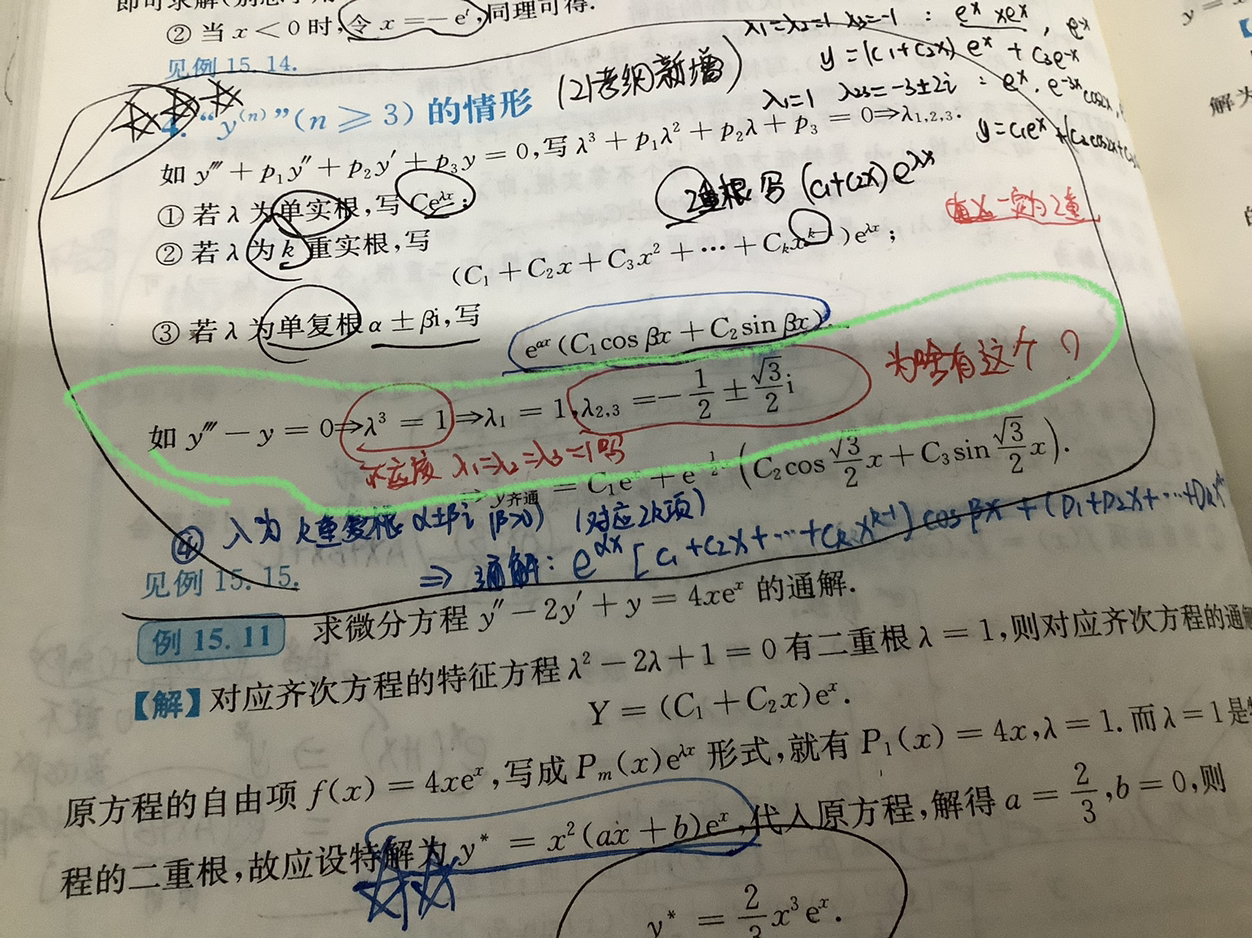 ② 当 x < 0 时,令 x = -eᵗ,同理可得.
见例 15.14.
λ₁=λ₂=1 λ₃=-1 : eˣ xeˣ , eˣ
4. “y⁽ⁿ⁾”(n ⩾ 3) 的情形 (21考纲新增)
y = (C₁+C₂x) eˣ + C₃e⁻ˣ
λ₁=1 λ₂,₃=-3±2i : eˣ, e⁻³ˣcos2x,
如 y‴ + p₁y″ + p₂y′ + p₃y = 0,写 λ³ + p₁λ² + p₂λ + p₃ = 0⇒λ₁,₂,₃.
y=C₁eˣ +(C₂cos2x+C₃
① 若 λ 为单实根,写 Ce^{λx};
2重根 写 (C₁+C₂x) e^{λx}
② 若 λ 为 k 重实根,写
一定为2重
(C₁ + C₂x + C₃x² + ⋯ + Cₖx^{k-1})e^{λx};
③ 若 λ 为单复根 α ± βi,写
e^{αx}(C₁cos βx + C₂sin βx).
如 y‴ - y = 0⇒λ³ = 1⇒λ₁ = 1,λ₂,₃ = -1/2 ± √3/2 i 为啥有这个?
不应该 λ₁=λ₂=λ₃=1吗
⇒ y齐通 = C₁eˣ + e^{-1/2 x}(C₂cos √3/2 x + C₃sin √3/2 x).
④ λ为 k重复根 α±βi (β>0) (对应2k项)
⇒ 通解: e^{αx} [C₁+C₂x+⋯+Cₖx^{k-1}) cos βx + (D₁+D₂x+⋯+Dₖx
见例 15.15.
例 15.11 求微分方程 y″ - 2y′ + y = 4xeˣ 的通解.
【解】对应齐次方程的特征方程 λ² - 2λ + 1 = 0 有二重根 λ = 1,则对应齐次方程的通解
Y = (C₁ + C₂x)eˣ.
原方程的自由项 f(x) = 4xeˣ,写成 Pₘ(x)e^{λx} 形式,就有 P₁(x) = 4x,λ = 1. 而 λ = 1 是
程的二重根,故应设特解为 y* = x²(ax + b)eˣ,代入原方程,解得 a = 2/3,b = 0,则
y* = 2/3 x³eˣ.